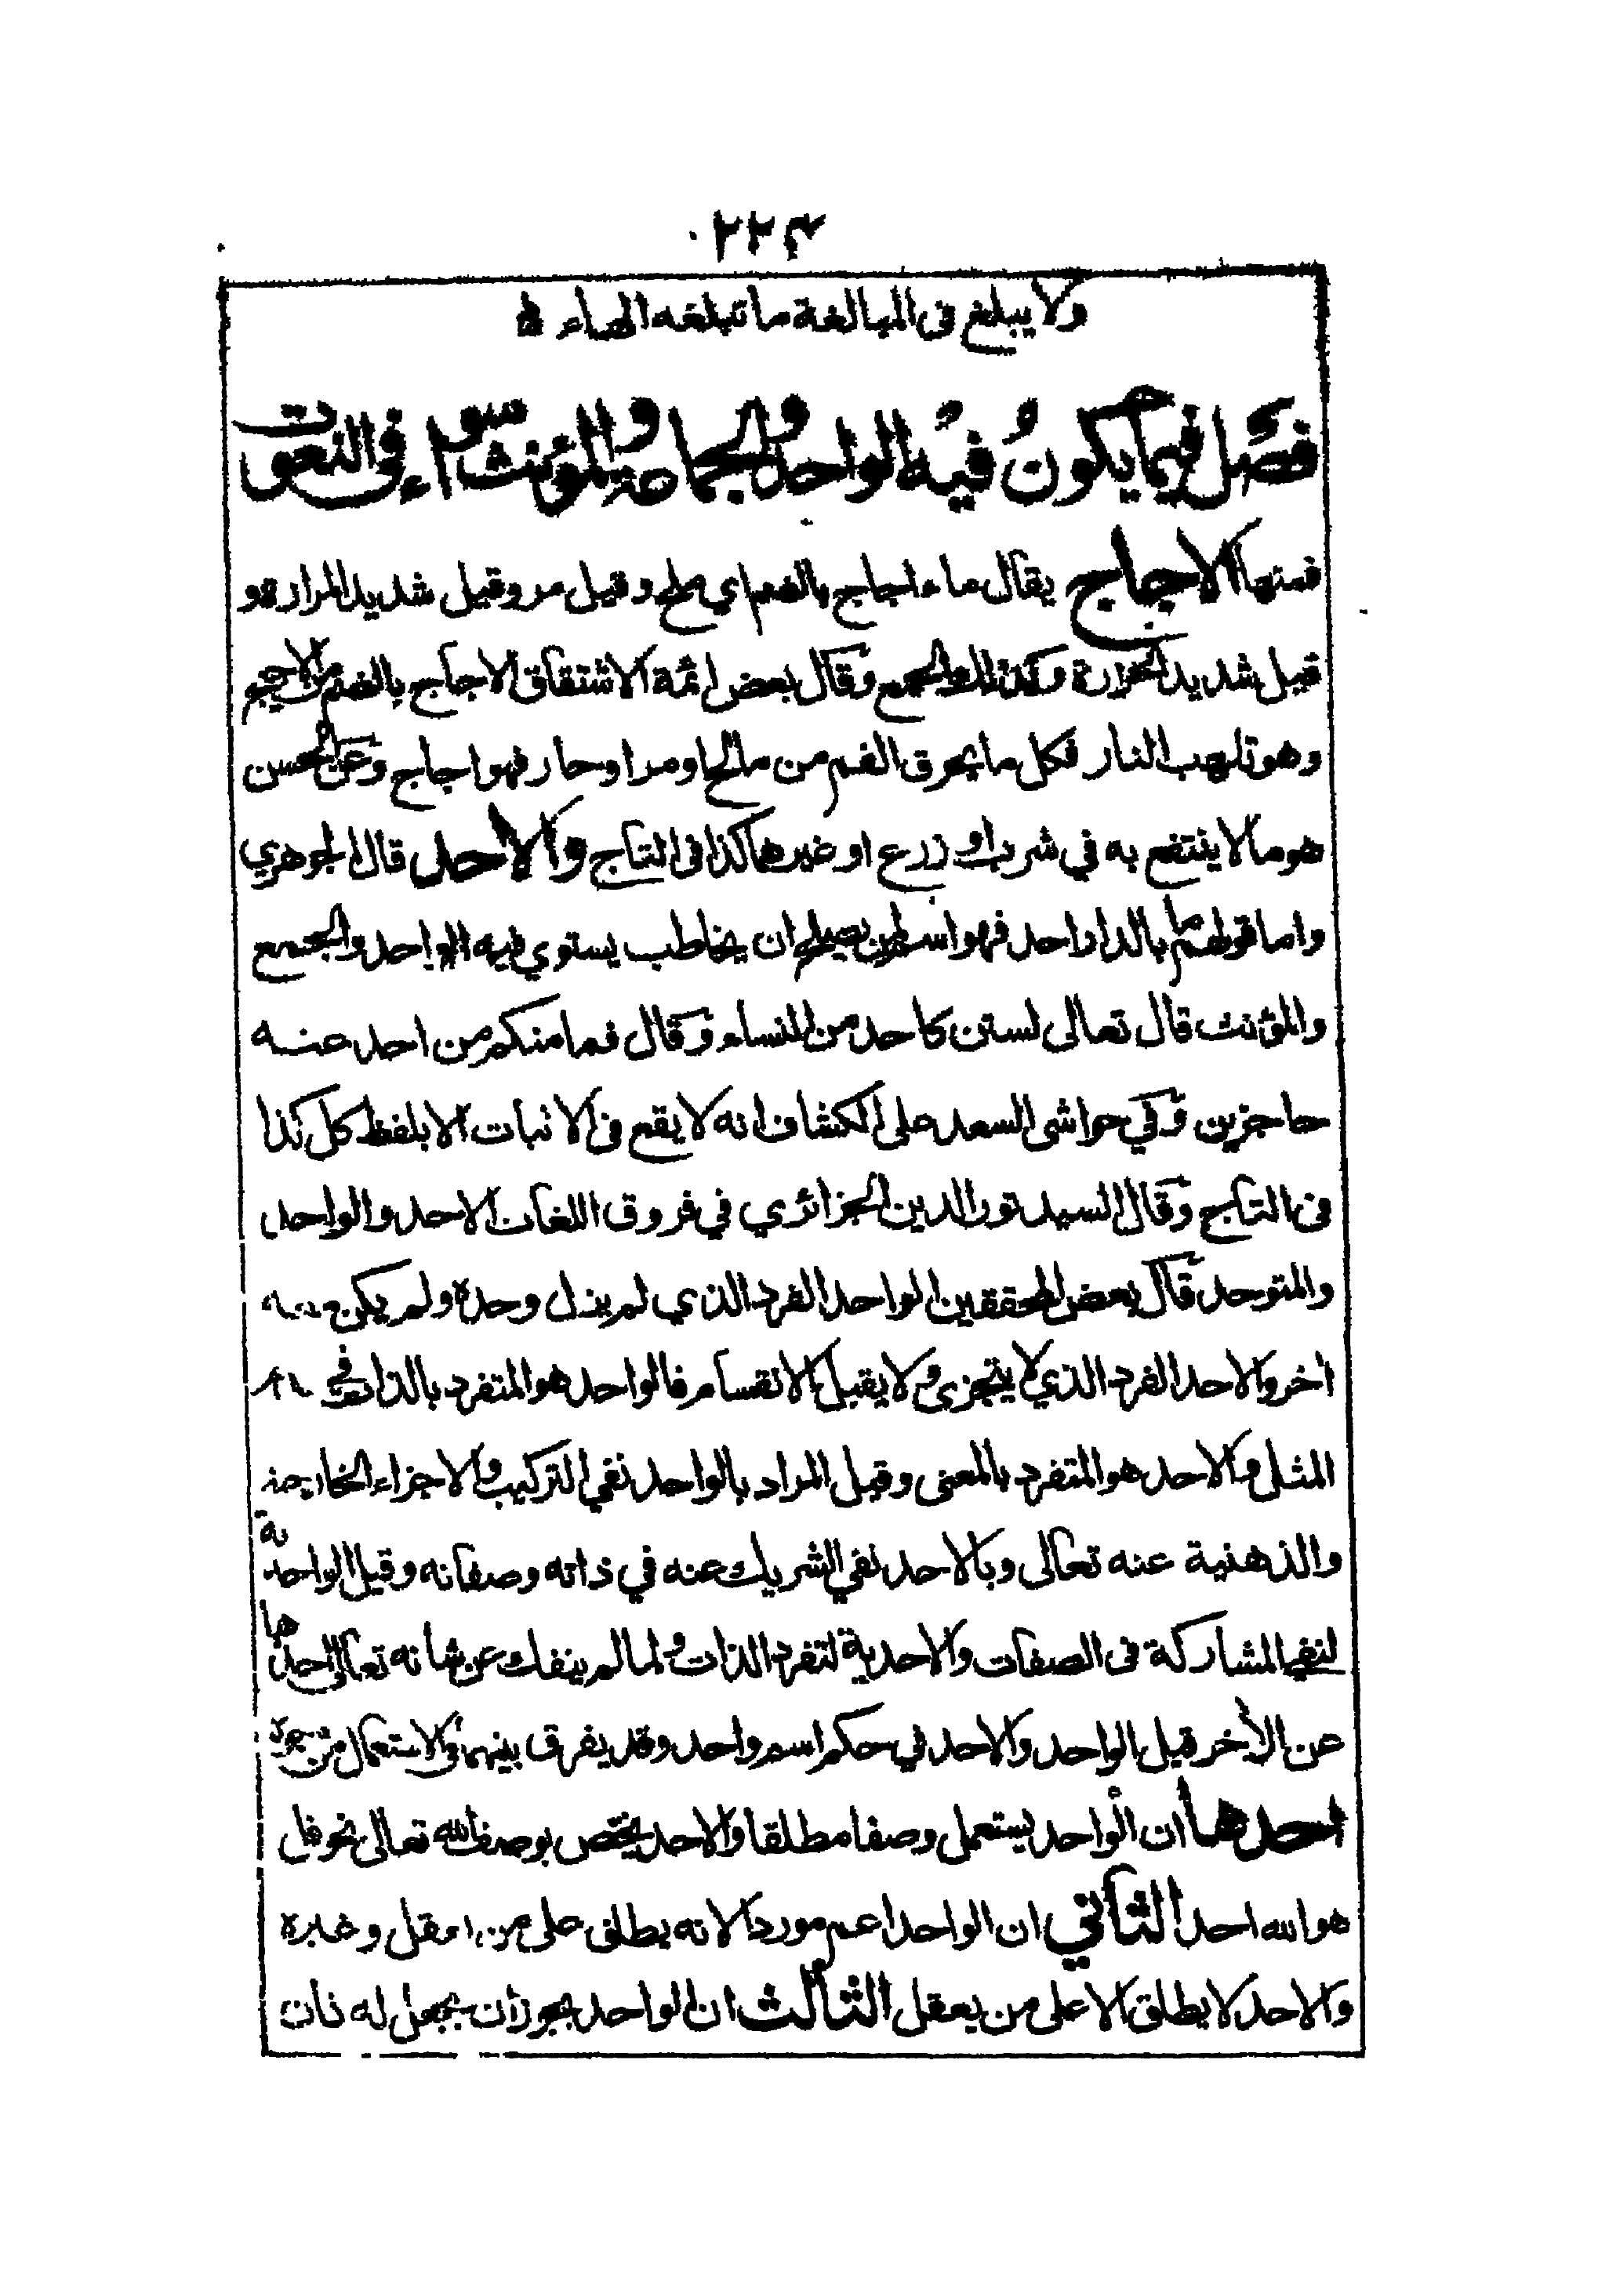 ٢٢٣
ولا يبلغ فى المبالغة ما تبلغه الهاء
فصل فيما يكون فيه الواحد والجماعة والمؤنث سواء فى النعوت
فمنها الاجاج يقال ماء اجاج بالضم اي ملح وقيل مر وقيل شديد المرارة و
قيل شديد الحرارة وكذلك الجمع وقال بعض ائمة الاشتقاق الاجاج بالضم من الاجيج
وهو تلهب النار فكل ما يحرق الفم من مالح او مر او حار فهو اجاج وعن الحسن
هو ما لا ينتفع به في شرب او زرع او غيرهما كذا فى التاج والاحد قال الجوهري
واما قولهم ما بالدار احد فهو اسم لمن يصلح ان يخاطب يستوي فيه الواحد والجمع
والمؤنث قال تعالى لستن كاحد من النساء وقال فما منكم من احد عنه
حاجزين وفي حواشى السعد على الكشاف انه لا يقع فى الاثبات الا بلفظ كل كذا
فى التاج وقال السيد نور الدين الجزائري في فروق اللغات الاحد والواحد
والمتوحد قال بعض المحققين الواحد الفرد الذي لم يزل وحده ولم يكن معه
اخر والاحد الفرد الذي لا يتجزى ولا يقبل الانقسام فالواحد هو المتفرد بالذات فى عدم
المثل والاحد هو المتفرد بالمعنى وقيل المراد بالواحد نفي التركيب والاجزاء الخارجية
والذهنية عنه تعالى وبالاحد نفي الشريك عنه في ذاته وصفاته وقيل الواحدية
لنفي المشاركة فى الصفات والاحدية لتفرد الذات ولما لم ينفك عن شانه تعالى احدهما
عن الآخر قيل الواحد والاحد في حكم اسم واحد وقد يفرق بينهما فى الاستعمال من وجوه
احدها ان الواحد يستعمل وصفا مطلقا والاحد يختص بوصف الله تعالى نحو قل
هو الله احد الثاني ان الواحد اعم موردا لانه يطلق على من يعقل وغيره
والاحد لا يطلق الا على من يعقل الثالث ان الواحد يجوز ان يجعل له ثان